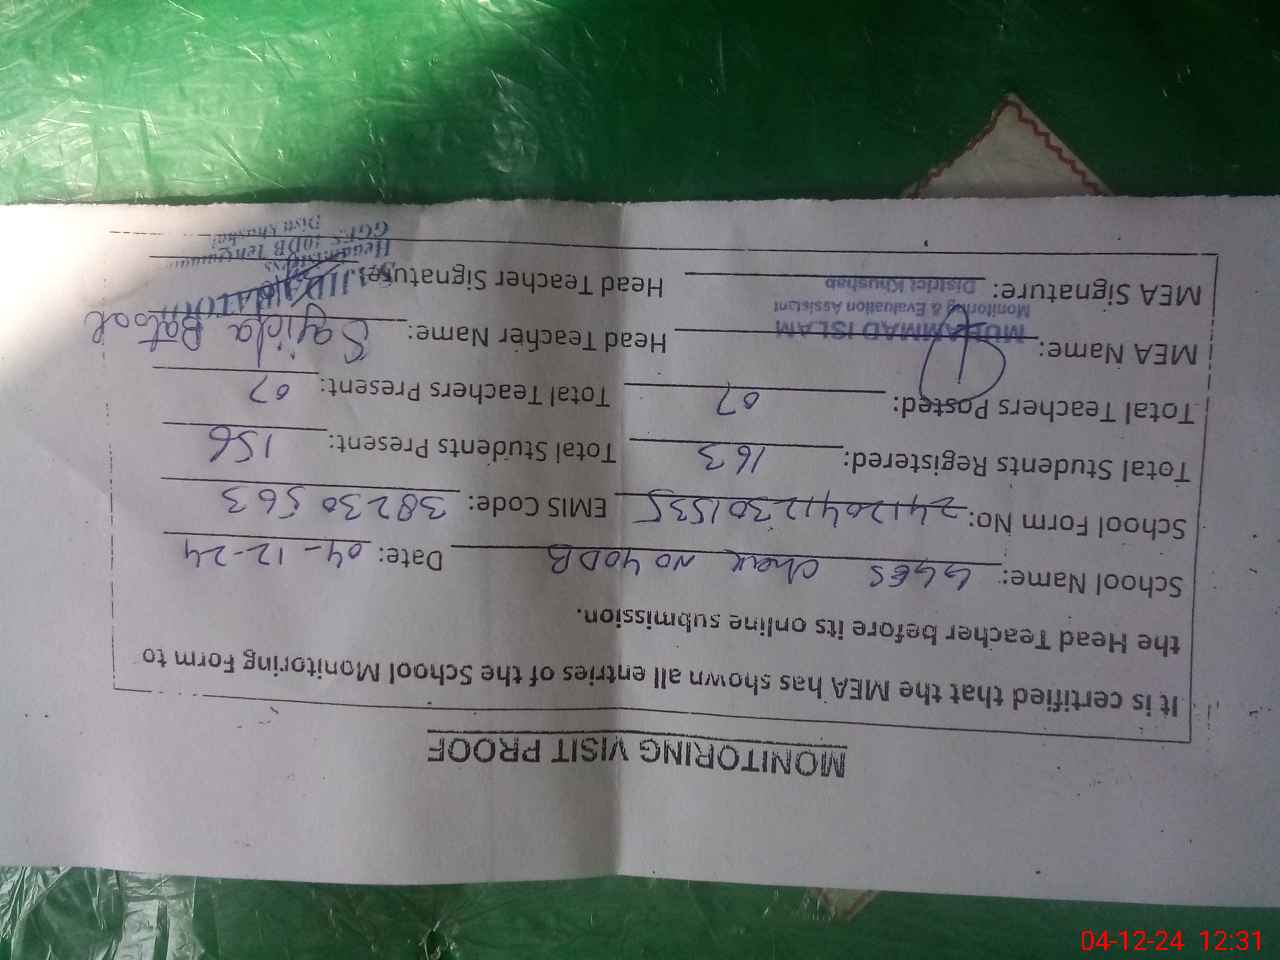 MONITORING VISIT PROOF
It is certified that the MEA has shown all entries of the School Monitoring Form to
the Head Teacher before its online submission.
School Name: GGES Chak NO 40DB Date: 04-12-24
School Form No: 24120412301535 EMIS Code: 38230563
Total Students Registered: 163 Total Students Present: 156
Total Teachers Posted: 07 Total Teachers Present: 07
MEA Name: MUHAMMAD ISLAM Head Teacher Name: Sajida Batool
Monitoring & Evaluation Assistant
District Khushab
MEA Signature: Head Teacher Signature:
SAJIDA BATOOL
Headmistress
04-12-24 12:31